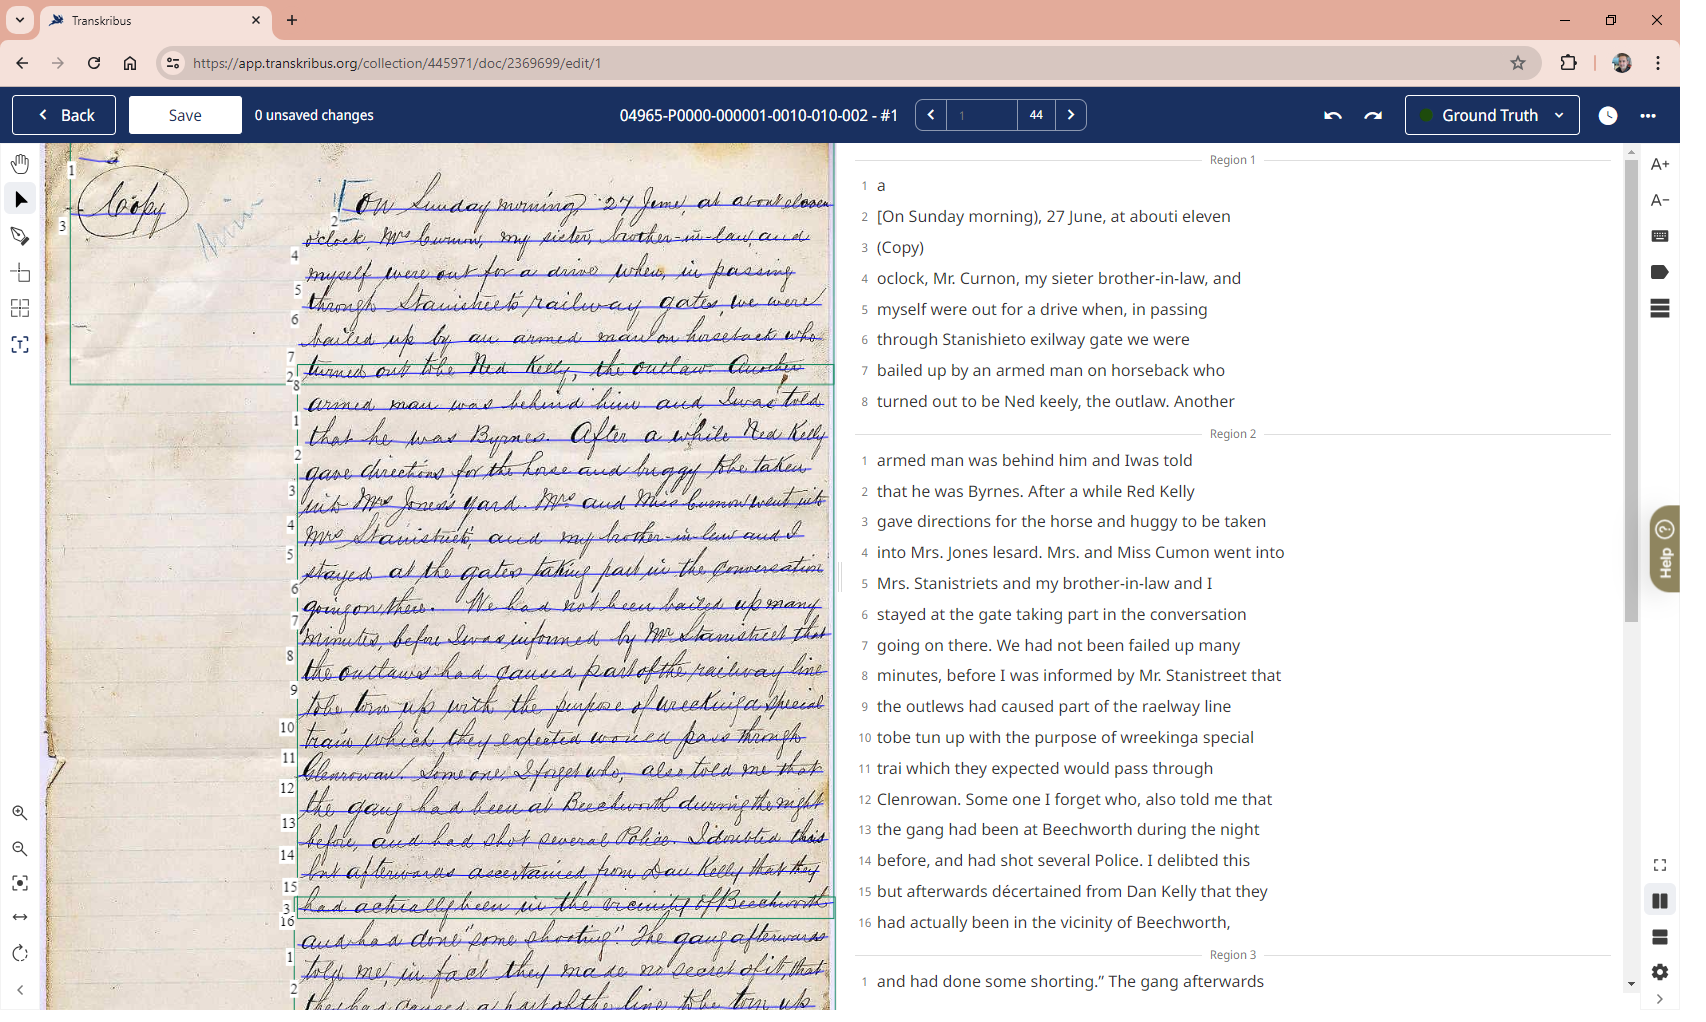 Transkribus
https://app.transkribus.org/collection/445971/doc/2369699/edit/1
Back
Save
0 unsaved changes
04965-P0000-000001-0010-010-002 - #1
1
44
Ground Truth
Copy
[On Sunday morning, 27 June, at about eleven
o'clock, Mrs Curnow, my sister, brother-in-law, and
myself were out for a drive when, in passing
through Stanistreet's railway gates, we were
bailed up by an armed man on horseback who
turned out tobe Ned Kelly, the outlaw. Another
armed man was behind him and I was told
that he was Byrnes. After a while Ned Kelly
gave directions for the horse and buggy tobe taken
into Mrs Jones's yard. Mrs and Miss Curnow went into
Mrs Stanistreet's, and my brother-in-law and I
stayed at the gates taking part in the conversation
going on there. We had not been bailed up many
minutes, before I was informed by Mr Stanistreet that
the outlaws had caused part of the railway line
tobe torn up with the purpose of wrecking a special
train which they expected would pass through
Glenrowan. Some one, I forget who, also told me that
the gang had been at Beechworth during the night
before, and had shot several Police. I doubted this
but afterwards ascertained from Dan Kelly that they
had actually been in the vicinity of Beechworth
and had done "some shooting". The gang afterwards
told me, in fact they made no secret of it, that
they had caused a part of the line tobe torn up
1
3
2
4
5
6
7
2
8
1
2
3
4
5
6
7
8
9
10
11
12
13
14
15
3
16
1
2
Region 1
1 a
2 [On Sunday morning), 27 June, at abouti eleven
3 (Copy)
4 oclock, Mr. Curnon, my sieter brother-in-law, and
5 myself were out for a drive when, in passing
6 through Stanishieto exilway gate we were
7 bailed up by an armed man on horseback who
8 turned out to be Ned keely, the outlaw. Another
Region 2
1 armed man was behind him and Iwas told
2 that he was Byrnes. After a while Red Kelly
3 gave directions for the horse and huggy to be taken
4 into Mrs. Jones lesard. Mrs. and Miss Cumon went into
5 Mrs. Stanistriets and my brother-in-law and I
6 stayed at the gate taking part in the conversation
7 going on there. We had not been failed up many
8 minutes, before I was informed by Mr. Stanistreet that
9 the outlews had caused part of the raelway line
10 tobe tun up with the purpose of wreekinga special
11 trai which they expected would pass through
12 Clenrowan. Some one I forget who, also told me that
13 the gang had been at Beechworth during the night
14 before, and had shot several Police. I delibted this
15 but afterwards décertained from Dan Kelly that they
16 had actually been in the vicinity of Beechworth,
Region 3
1 and had done some shorting.” The gang afterwards
A+
A−
Help